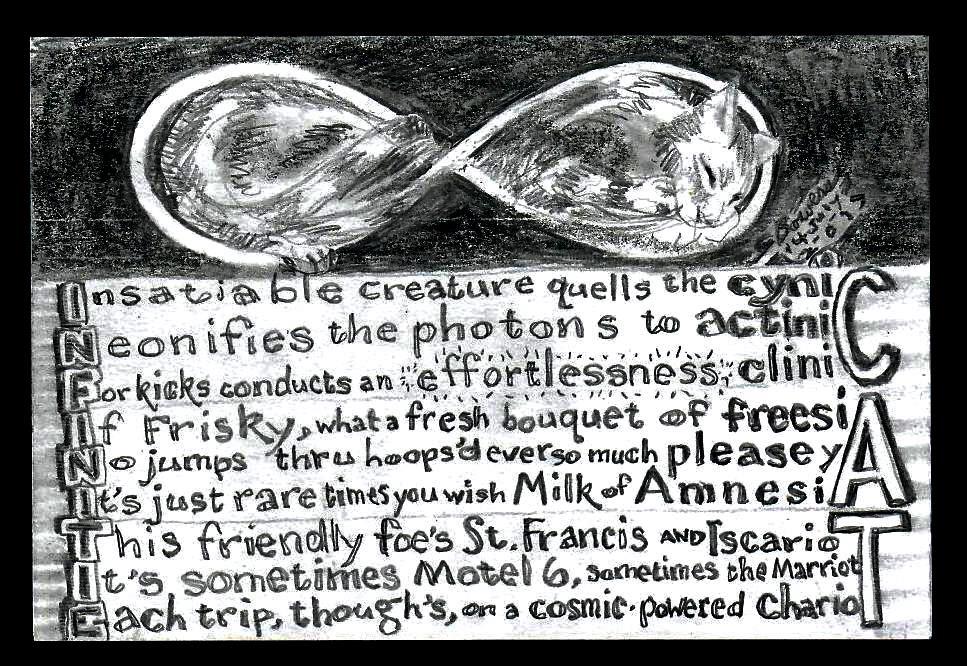 Insatiable creature quells the cyniC
Neonifies the photons to actiniC
For kicks conducts an effortlessness cliniC
If Frisky, what a fresh bouquet of freesiA
No jumps thru hoops'd ever so much please yA
It's just rare times you wish Milk of AmnesiA
This friendly foe's St. Francis AND IscarioT
It's sometimes Motel 6, sometimes the MarriotT
Each trip, though's, on a cosmic-powered CharioT